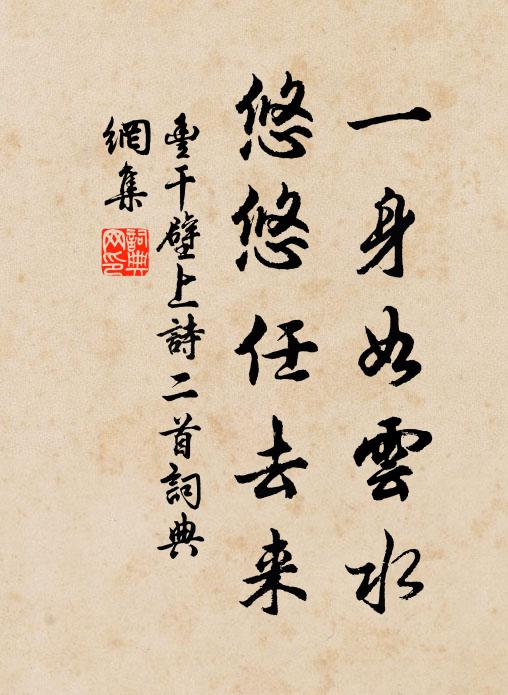 一身如雲水
悠悠任去来
豊干壁上詩二首詞典
網集
詞典
网印